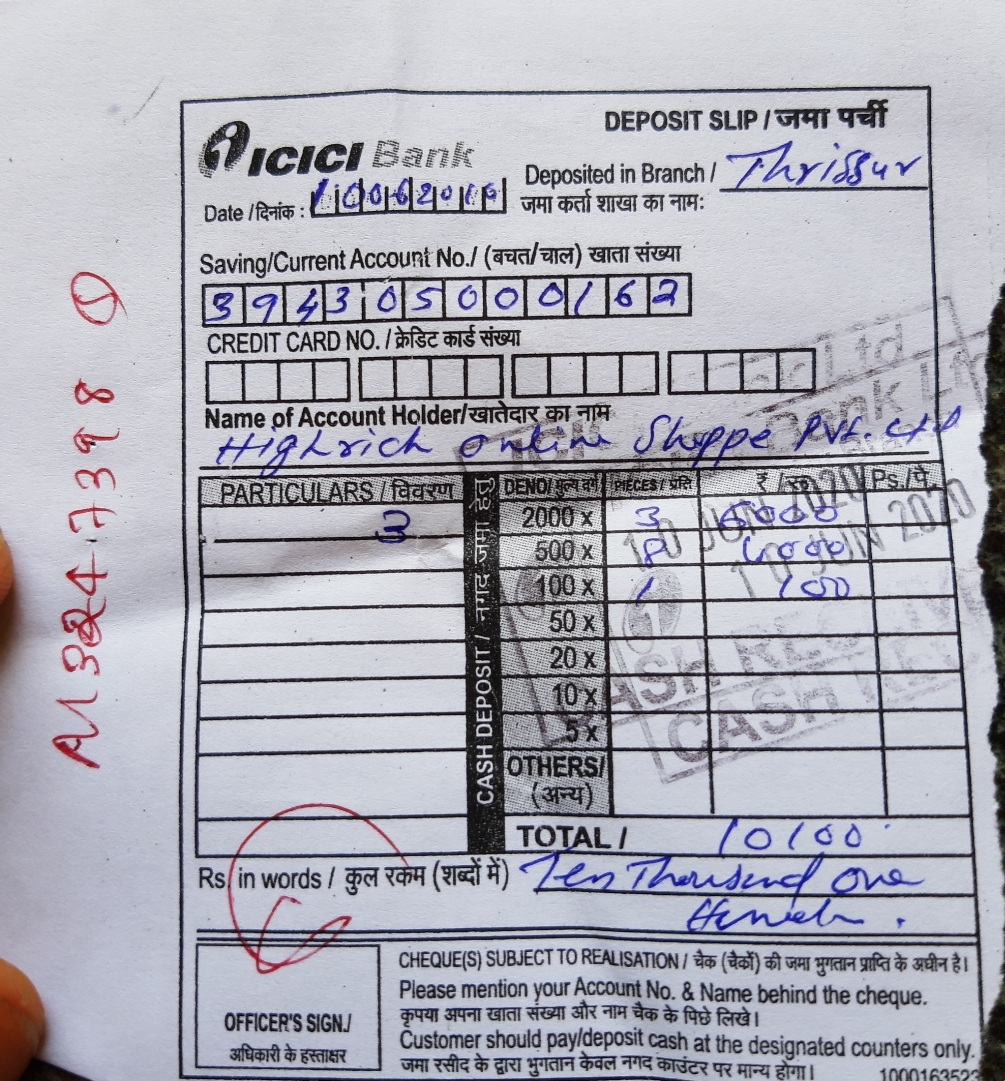 DEPOSIT SLIP / जमा पर्ची
ICICI Bank
Deposited in Branch / Thrissur
जमा कर्ता शाखा का नाम:
Date / दिनांक :
Saving/Current Account No./ (बचत/चाल) खाता संख्या
394305000162
CREDIT CARD NO. / क्रेडिट कार्ड संख्या
Name of Account Holder/खातेदार का नाम
Highrich Online Shoppe Pvt. Ltd
PARTICULARS / विवरण DENO/मुल्य वर्ग PIECES / प्रति ₹ / रू Ps./पै.
3 2000 x 3 6000
500 x 8 4000
100 x 1 100
50 x
20 x
10 x
5 x
OTHERS/
(अन्य)
CASH DEPOSIT / नगद जमा हेतु
TOTAL / 10100
Rs. in words / कुल रकम (शब्दों में) Ten Thousand One
10 JUN 2020
10 JUN 2020
CHEQUE(S) SUBJECT TO REALISATION / चैक (चैकों) की जमा भुगतान प्राप्ति के अधीन है।
Please mention your Account No. & Name behind the cheque.
कृपया अपना खाता संख्या और नाम चैक के पिछे लिखे।
Customer should pay/deposit cash at the designated counters only.
जमा रसीद के द्वारा भुगतान केवल नगद काउंटर पर मान्य होगा।
OFFICER'S SIGN./
अधिकारी के हस्ताक्षर
1000163523